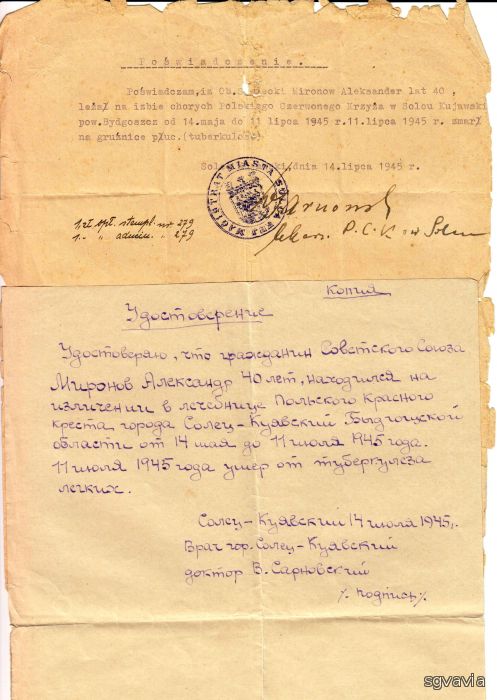 Poświadczenie.
Poświadczam,iż Ob. Mironow Aleksander lat 40 ,
leżał na izbie chorych Polskiego Czerwonego Krzyża w Solcu Kujawskim
pow.Bydgoszcz od 14.maja do 11 lipca 1945 r.11.lipca 1945 r. zmarł
na gruźnice płuc.(tuberkuloze).
dnia 14.lipca 1945 r.
MAGISTRAT MIASTA
P.C.K w Solcu
1 zł opł. stempl. nr 279
1.. " admin. " 279
Копия
Удостоверение
Удостоверяю, что гражданин Советского Союза
Миронов Александр 40 лет, находился на
изличении в лечебнице Польского Красного
креста, города Солец-Куявский Быдгощской
области от 14 мая до 11 июля 1945 года.
11 июля 1945 года умер от туберкулёза
легких.
Солец-Куявский 14 июля 1945г.
Врач гор. Солец-Куявский
доктор В. Сарновский
/. подпись /.
sgvavia